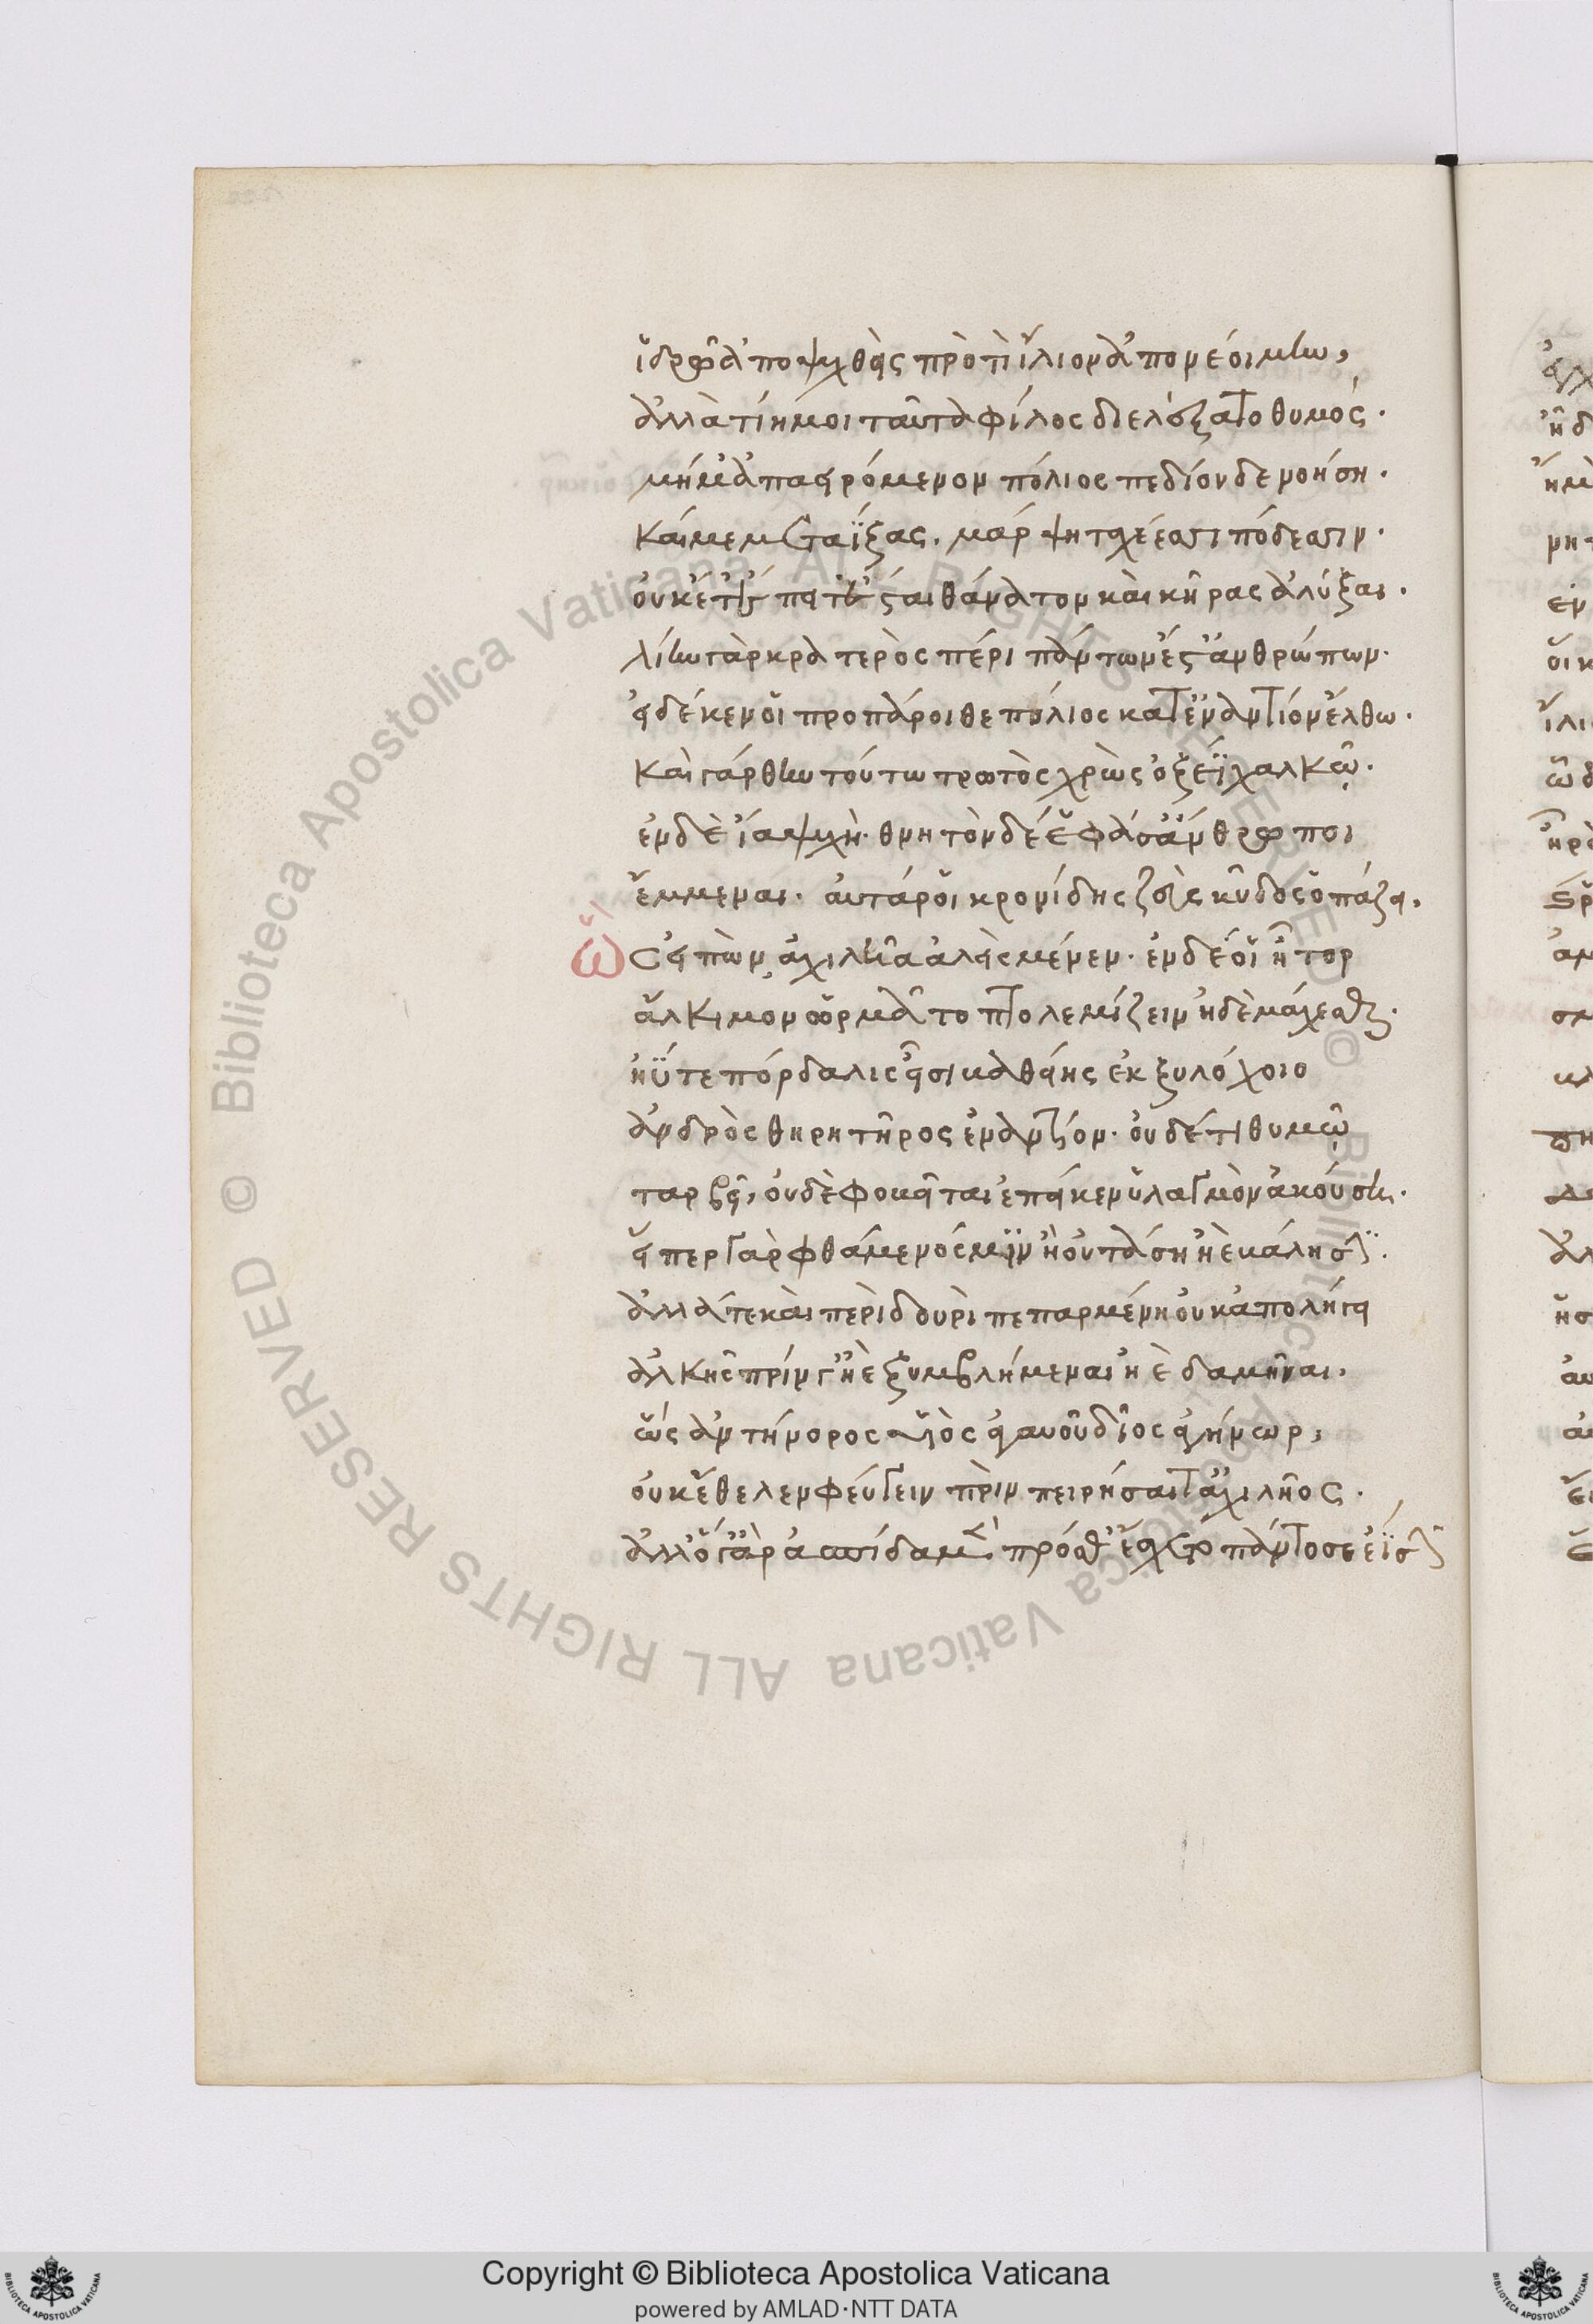 ἵδρῶ ἀποψυχθεὶς προτὶ ἴλιον ἀπονεοίμην,
ἀλλὰ τίη μοι ταῦτα φίλος διελέξατο θυμός.
μή μ' ἀπαειρόμενον πόλιος πεδίονδε νοήση.
καί με μεταΐξας. μάρψη ταχέεσσι πόδεσσιν.
οὐκέτ' ἔπειτ' ἔσται θάνατον καὶ κῆρας ἀλύξαι.
λίην γὰρ κρατερὸς πέρι πάντων ἔστ' ἀνθρώπων.
εἰ δέ κέν οἱ προπάροιθε πόλιος κατεναντίον ἔλθω.
καὶ γάρ θην τούτω τρωτὸς χρὼς ὀξέϊ χαλκῶ.
ἐν δὲ ἴα ψυχή. θνητὸν δέ ἕ φασ' ἄνθρωποι
ἔμμεναι. αὐτάρ οἱ κρονίδης ζεὺς κῦδος ὀπάζει.
ὣς εἰπὼν ἀχιλῆα ἀλεὶς μένεν. ἐν δέ οἱ ἦτορ
ἄλκιμον ὡρμᾶτο πτολεμίζειν ἠδὲ μάχεσθαι.
ἠΰτε πόρδαλις εἶσι βαθείης ἐκ ξυλόχοιο
ἀνδρὸς θηρητῆρος ἐναντίον. οὐδέ τι θυμῶ
ταρβεῖ, οὐδὲ φοβεῖται ἐπεί κεν ὑλαγμὸν ἀκούσῃ.
εἴπερ γὰρ φθάμενός μιν ἢ οὐτάση ἠὲ βάλησιν.
ἀλλά τε καὶ περὶ δουρὶ πεπαρμένη οὐκ ἀπολήγει
ἀλκῆς πρίν γ' ἠὲ ξυμβλήμεναι ἠὲ δαμῆναι.
ὣς ἀντήνορος υἱὸς ἀγαυοῦ δῖος ἀγήνωρ,
οὐκ ἔθελεν φεύγειν πρὶν πειρήσαιτ' ἀχιλῆος.
ἀλλ' ὅγ' ἄρ' ἀσπίδα μὲν πρόσθ' ἔσχετο πάντοσε ἐΐσην
Copyright © Biblioteca Apostolica Vaticana
powered by AMLAD·NTT DATA